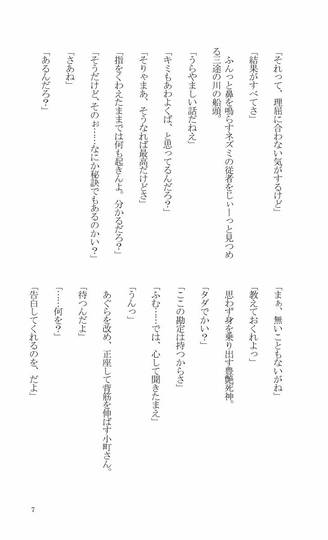 「それって、理屈に合わない気がするけど」
「結果がすべてさ」
　ふんっと鼻を鳴らすネズミの従者をじぃーっと見つめ
る三途の川の船頭。
「うらやましい話だねえ」
「キミもあわよくば、と思ってるんだろ？」
「そりゃまあ、そうなれば最高だけどさ」
「指をくわえたままでは何も起きんよ。分かるだろ？」
「そうだけど、そのぉ……なにか秘訣でもあるのかい？」
「さあね」
「あるんだろ？」
「まぁ、無いこともないがね」
「教えておくれよっ」
　思わず身を乗り出す豊艶死神。
「タダでかい？」
「ここの勘定は持つからさ」
「ふむ……では、心して聞きたまえ」
「うんっ」
　あぐらを改め、正座して背筋を伸ばす小町さん。
「待つんだよ」
「……何を？」
「告白してくれるのを、だよ」
7